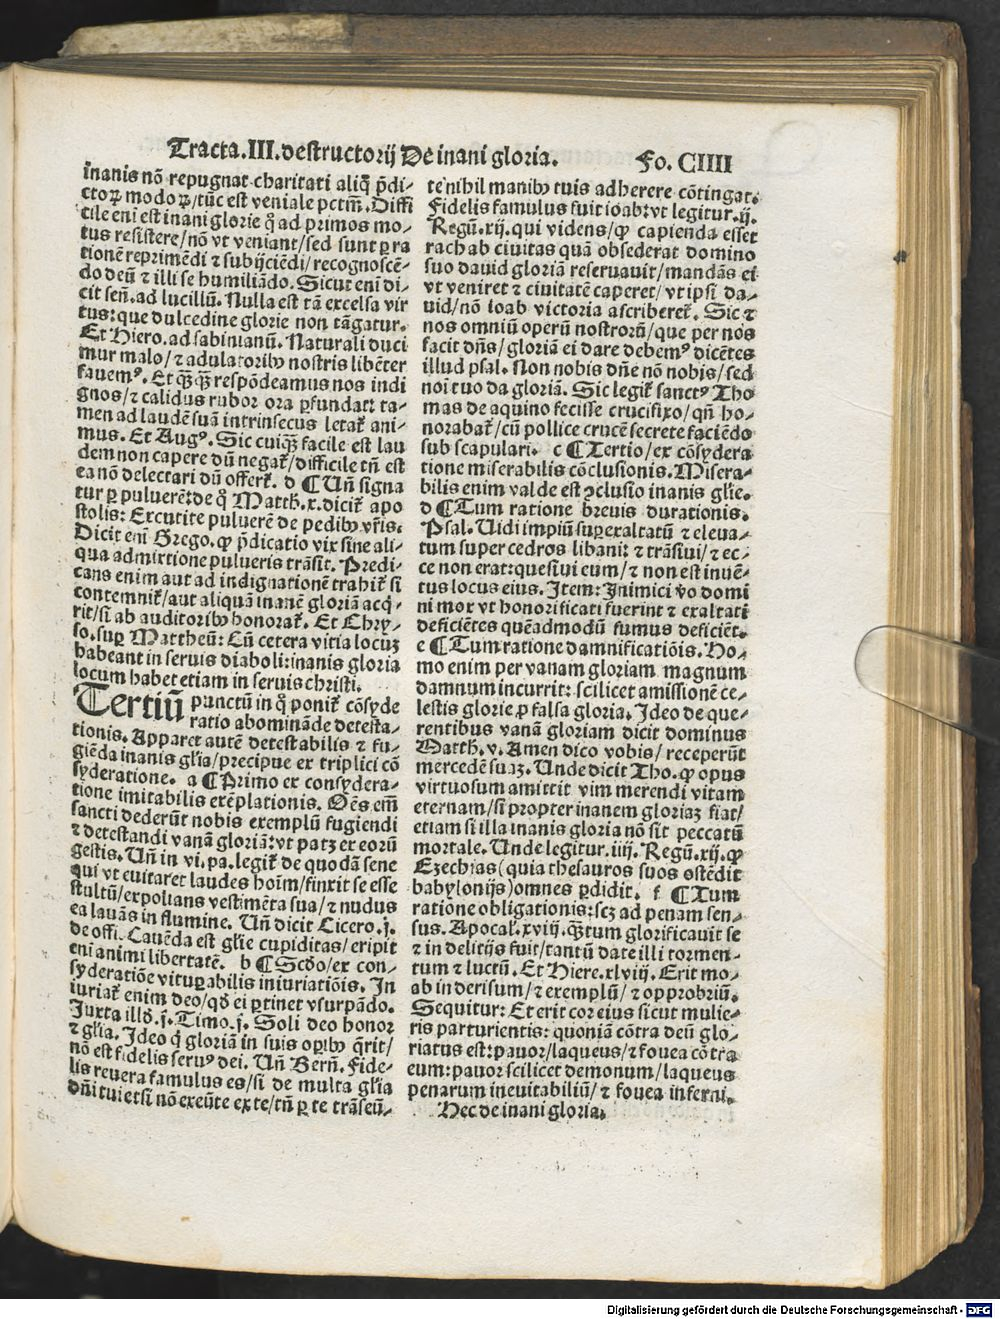 Tracta.III.destructorij De inani gloria. Fo. CIIII
inanis nõ repugnat charitati aliq̃ p̃di-
ctoꝝ modoꝝ/tũc est veniale pctm̃. Diffi
cile eni est inani glorie q̊ ad primos mo-
tus resistere/nõ vt veniant/sed sunt ꝑ ra
tionẽ reprimẽdi ⁊ subijciẽdi/recognoscẽ-
do deũ ⁊ illi se humiliãdo. Sicut eni di-
cit señ. ad lucillũ. Nulla est tã excelsa vir
tus: que dulcedine glorie non tãgatur.
Et Hiero. ad sabinianũ. Naturali duci
mur malo/⁊ adulatoribꝰ nostris libẽter
fauemꝰ. Et q̃q̃ respõdeamus nos indi
gnos/⁊ calidus rubor ora ꝑfundat: ta-
men ad laudẽ suã intrinsecus letat̃ ani-
mus. Et Augꝰ. Sic cuiq̃ facile est lau
dem non capere dũ negat̃/difficile tñ est
ea nõ delectari dũ offert̃. d ¶ Uñ signa
tur ꝑ puluerẽ: de q̊ Matth.x. dicit̃ apo
stolis: Excutite puluerẽ de pedibꝰ vr̃is.
Dicit eni Grego. ꝙ p̃dicatio vix sine ali-
qua admixtione pulueris trãsit. Predi-
cans enim aut ad indignationẽ trahit̃ si
contemnit̃/aut aliquã inanẽ gloriã acq̃-
rit/si ab auditoribꝰ honorat̃. Et Chry-
so. suꝑ Mattheũ: Cũ cetera vitia locuꝫ
habeant in seruis diaboli: inanis gloria
locum habet etiam in seruis christi.
Tertiũ punctũ in q̊ ponit̃ cõsyde
ratio abominãde detesta-
tionis. Apparet autẽ detestabilis ⁊ fu-
giẽda inanis gl̃ia/precipue ex triplici cõ
syderatione. a ¶ Primo ex consydera-
tione imitabilis exẽplationis. Oẽs em̃
sancti dederũt nobis exemplũ fugiendi
⁊ detestandi vanã gloriã: vt patꝫ ex eorũ
gestis. Uñ in vi. pa. legit̃ de quodã sene
qui vt euitaret laudes hoĩm/finxit se esse
stultũ/expolians vestimẽta sua/⁊ nudus
ea lauãs in flumine. Uñ dicit Cicero.j.
de offi. Cauẽda est gl̃ie cupiditas/eripit
eni animi libertatẽ. b ¶ Scd̃o/ex con-
syderatiõe vituꝑabilis iniuriatiõis. In
iuriat̃ enim deo/qd̃ ei ꝑtinet vsurpãdo.
Juxta illd̃.j. Timo.j. Soli deo honor
⁊ gl̃ia. Ideo q̃ gloriã in suis oꝑibꝰ q̃rit/
nõ est fidelis seruꝰ dei. Uñ Berñ. Fide-
lis reuera famulus es/si de multa gl̃ia
dñi tui etsi nõ exeũte ex te/tñ ꝑ te trãseũ-
te nihil manibꝰ tuis adherere cõtingat.
Fidelis famulus fuit ioab: vt legitur.ij.
Regũ.xij. qui videns/ꝙ capienda esset
rachab ciuitas quã obsederat domino
suo dauid gloriã reseruauit/mandãs ei
vt veniret ⁊ ciuitatẽ caperet/vt ipsi da-
uid/nõ ioab victoria ascriberet̃. Sic ⁊
nos omniũ operũ nostrorũ/que per nos
facit dñs/gloriã ei dare debemꝰ dicẽtes
illud psal. Non nobis dñe nõ nobis/sed
noi tuo da gloriã. Sic legit̃ sanctꝰ Tho
mas de aquino fecisse crucifixo/qñ ho-
norabat̃/cũ pollice crucẽ secrete faciẽdo
sub scapulari. c ¶ Tertio/ex cõsydera
tione miserabilis cõclusionis. Misera-
bilis enim valde est ꝯclusio inanis gl̃ie.
d ¶ Tum ratione breuis durationis.
Psal. Uidi impiũ suꝑexaltatũ ⁊ eleua-
tum super cedros libani: ⁊ trãsiui/⁊ ec-
ce non erat: quesiui eum/⁊ non est inuẽ-
tus locus eius. Item: Inimici v̊o domi
ni mox vt honorificati fuerint ⁊ exaltati
deficiẽtes quẽadmodũ fumus deficiẽt.
e ¶ Tum ratione damnificatiõis. Ho-
mo enim per vanam gloriam magnum
damnum incurrit: scilicet amissionẽ ce-
lestis glorie ꝓ falsa gloria. Ideo de que-
rentibus vanã gloriam dicit dominus
Matth.v. Amen dico vobis/receperũt
mercedẽ suaꝫ. Unde dicit Tho. ꝙ opus
virtuosum amittit vim merendi vitam
eternam/si propter inanem gloriaꝫ fiat/
etiam si illa inanis gloria nõ sit peccatũ
mortale. Unde legitur.iiij. Regũ.xij. ꝙ
Ezechias (quia thesauros suos ostẽdit
babylonijs) omnes ꝑdidit. f ¶ Tum
ratione obligationis: scꝫ ad penam sen-
sus. Apocal̃.xviij. Q̃tum glorificauit se
⁊ in delitijs fuit/tantũ date illi tormen-
tum ⁊ luctũ. Et Hiere.xlviij. Erit mo-
ab in derisum/⁊ exemplũ/⁊ opprobriũ.
Sequitur: Et erit cor eius sicut mulie-
ris parturientis: quoniã cõtra deũ glo-
riatus est: pauor/laqueus/⁊ fouea cõtra
eum: pauor scilicet demonum/laqueus
penarum ineuitabiliũ/⁊ fouea inferni.
Hec de inani gloria.
Digitalisierung gefördert durch die Deutsche Forschungsgemeinschaft - DFG